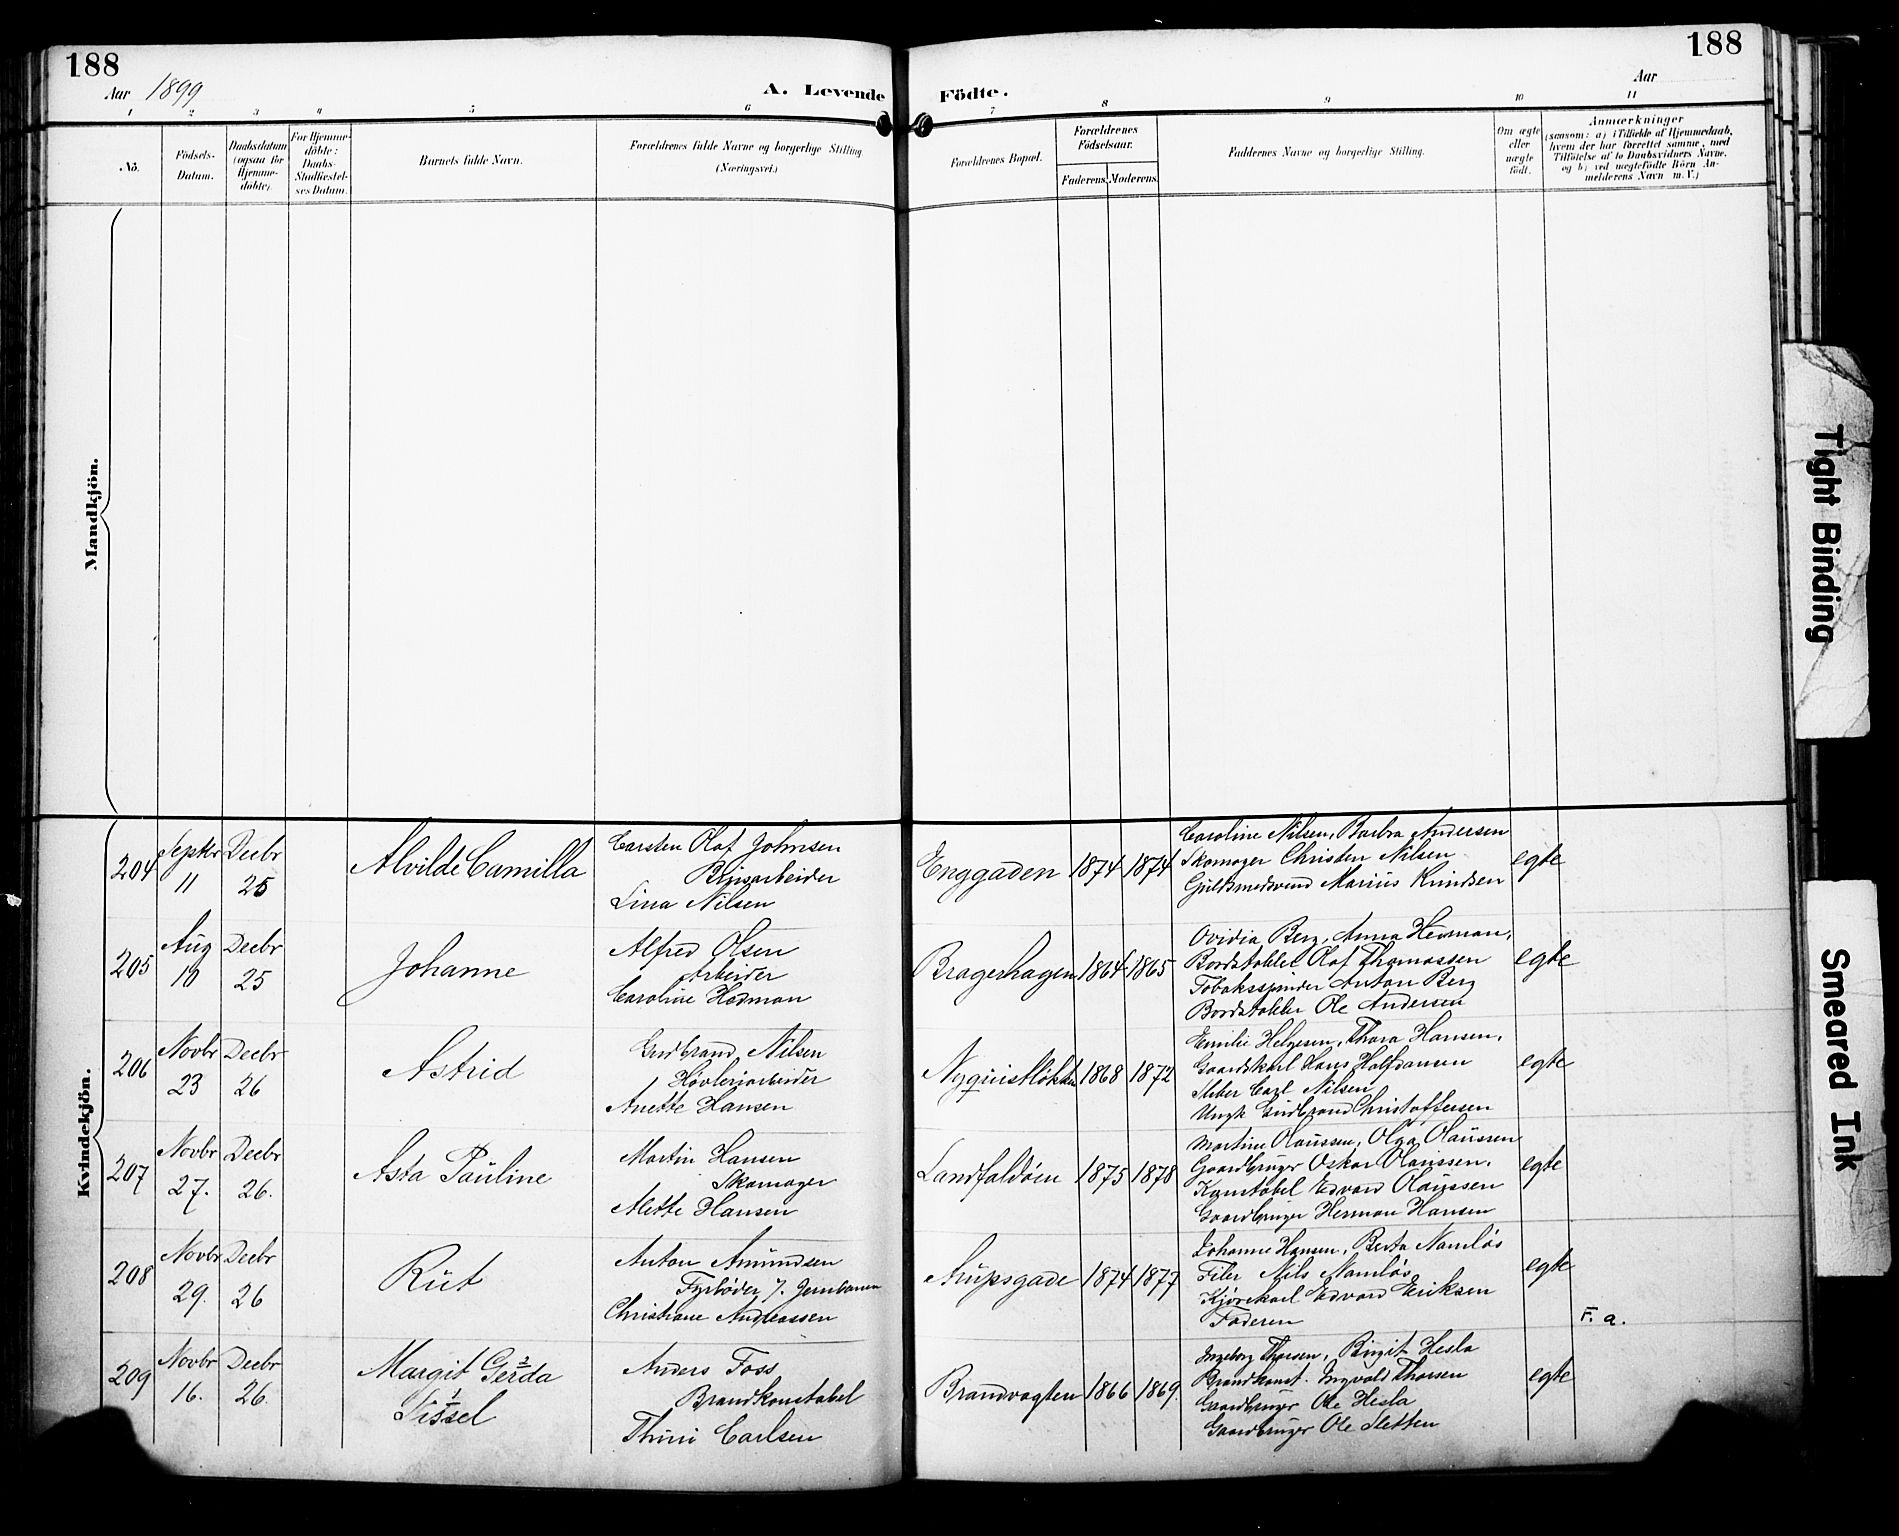 188
188
Aar 1899
A. Levende Födte.
Aar
1 2 3 4 5 6 7 8 9 10 11
No.
Födsels-Datum.
Daabsdatum (ogsaa for Hjemme-döbte).
For Hjemme-döbte: Daabs-Stadfæstel-ses Datum.
Barnets fulde Navn.
Forældrenes fulde Navne og borgerlige Stilling (Næringsvei.)
Forældrenes Bopæl.
Forældrenes Födselsaar.
Faderens. Moderens.
Faddernes Navne og borgerlige Stilling.
Om ægte eller uægte födt.
Anmærkninger
(saasom: a) i Tilfælde af Hjemmedaab,
hvem der har forrettet samme, med
Tilföielse af to Daabsvidners Navne,
og b) ved uægtefödte Börn An-
melderens Navn m. V.)
Mandkjön.
Kvindekjön.
204 Septbr 11 Decbr 25 Alvilde Camilla
Carsten Olaf Johnsen
Brugsarbeider
Lina Nilsen
Enggaden 1874 1874
Caroline Nilsen, Barbra Andersen
Skomager Christen Nilsen
Guldsmedsvend Marius Knudsen
egte
205 Aug 10 Decbr 25 Johanne
Alfred Olsen
Arbeider
Caroline Hedman
Bragerhagen 1864 1865
Ovidia Berg, Anna Hedman,
Bordstabler Olaf Thomassen
Tobaksspinder Anton Berg
Bordstabler Ole Andersen
egte
206 Novbr 23 Decbr 26 Astrid
Gudbrand Nilsen
Høvleriarbeider
Anette Hansen
Nyquistløkken 1868 1872
Emilie Helgesen, Thora Hansen,
Gaardskarl Hans Halfdansen
Carl Nilsen
Ungk Gudbrand Christoffersen
egte
207 Novbr 27. Decbr 26. Asta Pauline
Martin Hansen
Skomager
Mette Hansen
Landfaldøen 1875 1878
Martine Olaussen, Olga Olaussen
Gaardbruger Oskar Olaussen.
Konstabel Edvard Olaussen
Gaardbruger Herman Hansen
egte
208 Novbr 29. Decbr 26 Rut
Anton Amundsen
Fyrbøder v. Jernbanen
Christiane Andreassen
Arupsgade 1874 1877
Johanne Hansen, Berta Namløs
Filer Nils Namløs
Kjørekarl Edvard Eriksen
Faderen
egte
F. a.
209 Novbr 16. Decbr 26. Margit Gerda
Sissel
Anders Foss
Brandkonstabel
Thrine Carlsen
Brandvagten 1866 1869
Ingeborg Thorsen, Birgit Hesla
Brandkonst. Ingvald Thorsen
Gaardbruger Ole Hesla
Gaardbruger Ole Sletten
egte
Tight Binding
Smeared Ink